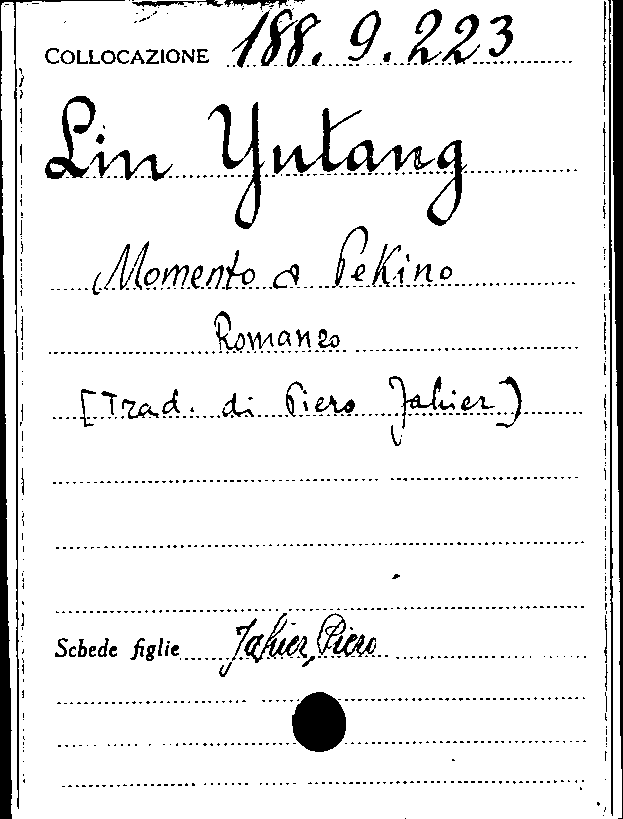 COLLOCAZIONE 188.9.223
Lin Yutang
Momento a Pekino
Romanzo
[Trad. di Piero Jahier)
Schede figlie Jahier, Piero